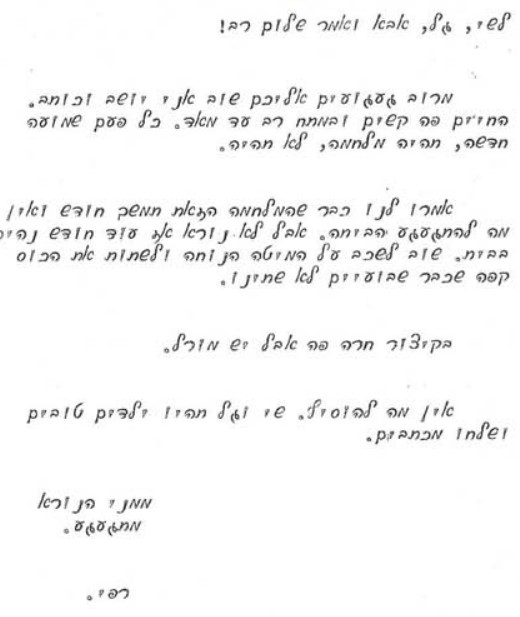 לשי, גל, אבא ואמר שלום רב!
מרוב געגועים אליכם שוב אני יושב וכותב.
החיים פה קשים ובמתח רב עד מאד. כל פעם שמועה
חדשה, תהיה מלחמה, לא תהיה.
אמרו לנו כבר שהמלחמה הזאת תמשך חודש ואין
מה להתגעגע הביתה. אבל לא נורא אז עוד חודש נהיה
בבית. שוב לשכב על המיטה הנוחה ולשתות את הכוס
קפה שכבר שבועיים לא שתינו.
בקיצור חרה פה אבל יש מורל.
אין מה להוסיף. שי וגל תהיו ילדים טובים
ושלחו מכתבים.
ממני הנורא
מתגעגע.
רפי.